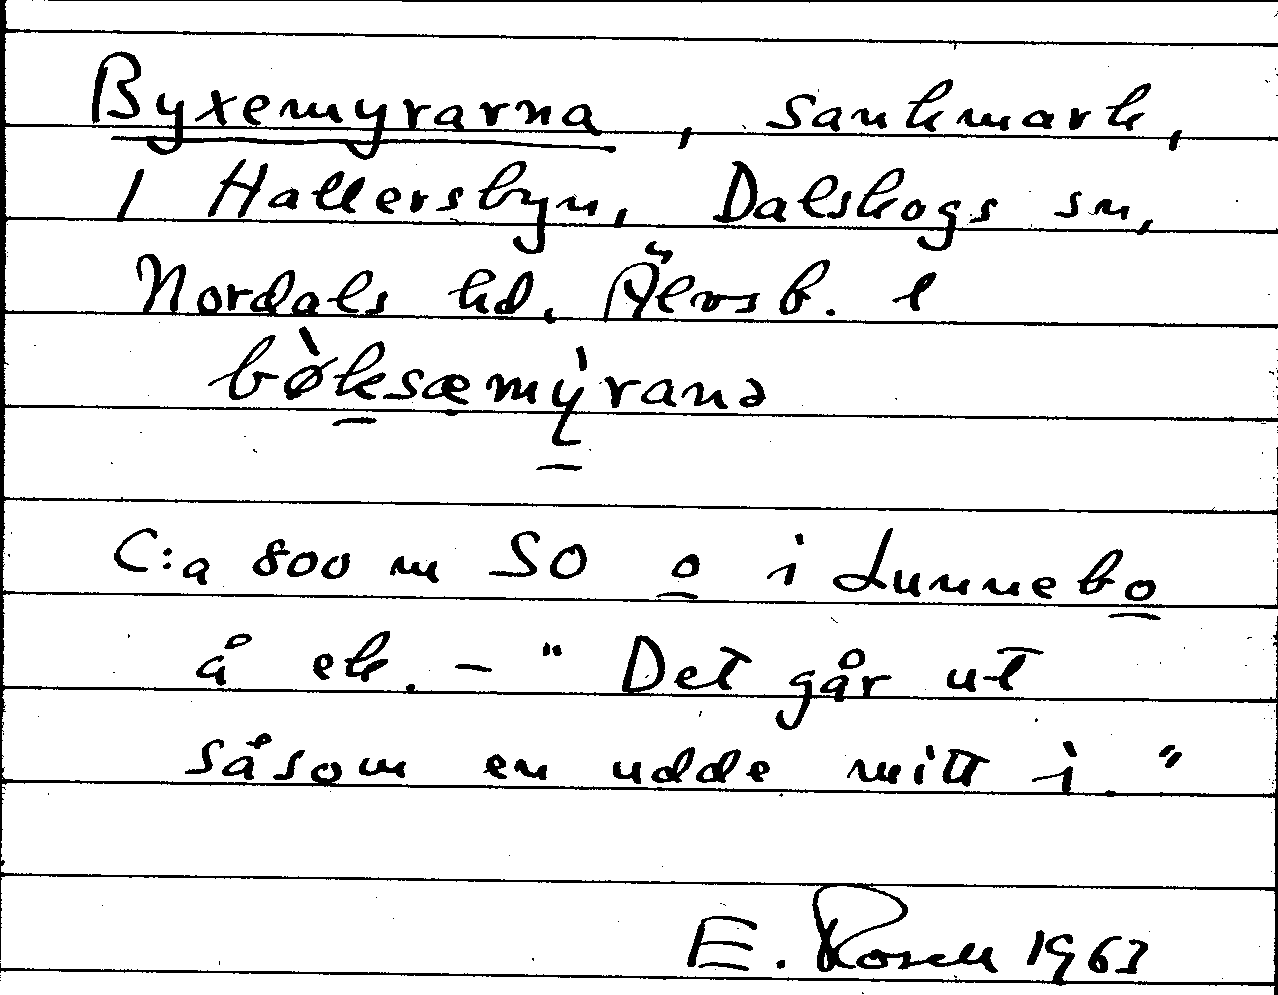 Byxemyrarna, sankmark,
1 Hallersbyn, Dalskogs sn,
Nordals hd. Älvsb. l
bø̀ksæmỳranə
C:a 800 m SO o i Lunnebo
å ek. – " Det går ut
såsom en udde mitt i. "
E. Rosell 1963